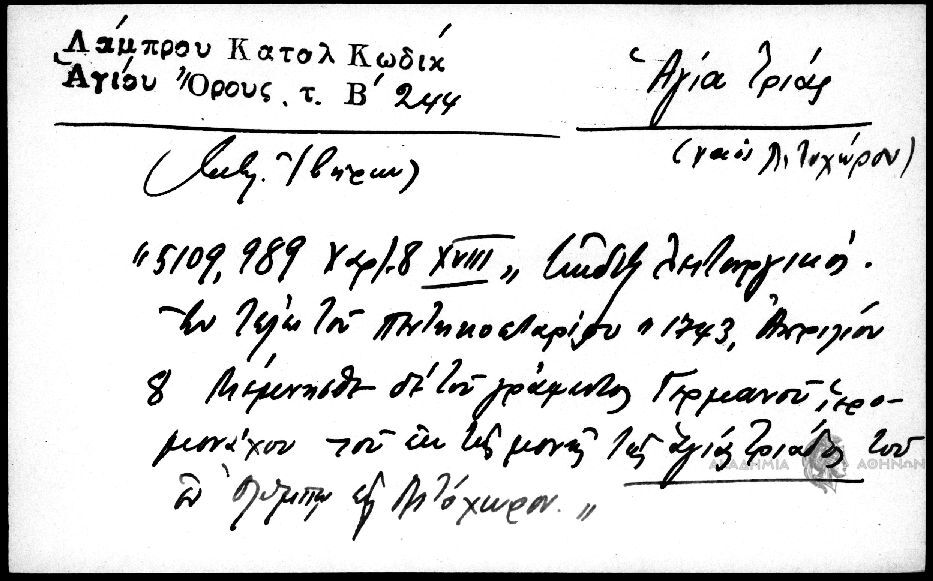 Λάμπρου Κατολ Κωδίκ
Ἁγίου Ὄρους. τ. Β' 244
Ἁγία Τριάς
(ναὸς Λιτοχώρου)
(Ἰβήρων)
"5109, 989 Χαρτ. 8 XVIII" Κῶδιξ Λειτουργικός.
Ἐν τέλει τοῦ Πεντηκοσταρίου "1743, Ἀπριλίου
8 Μέμνησθε δὲ τοῦ γράψαντος Γερμανοῦ ἱερο-
μονάχου τοῦ ἐκ τῆς μονῆς τῆς ἁγίας Τριάδος τοῦ
ἐν Ὀλύμπῳ εἰς Λιτόχωρον."
ΑΚΑΔΗΜΙΑ ΑΘΗΝΩΝ